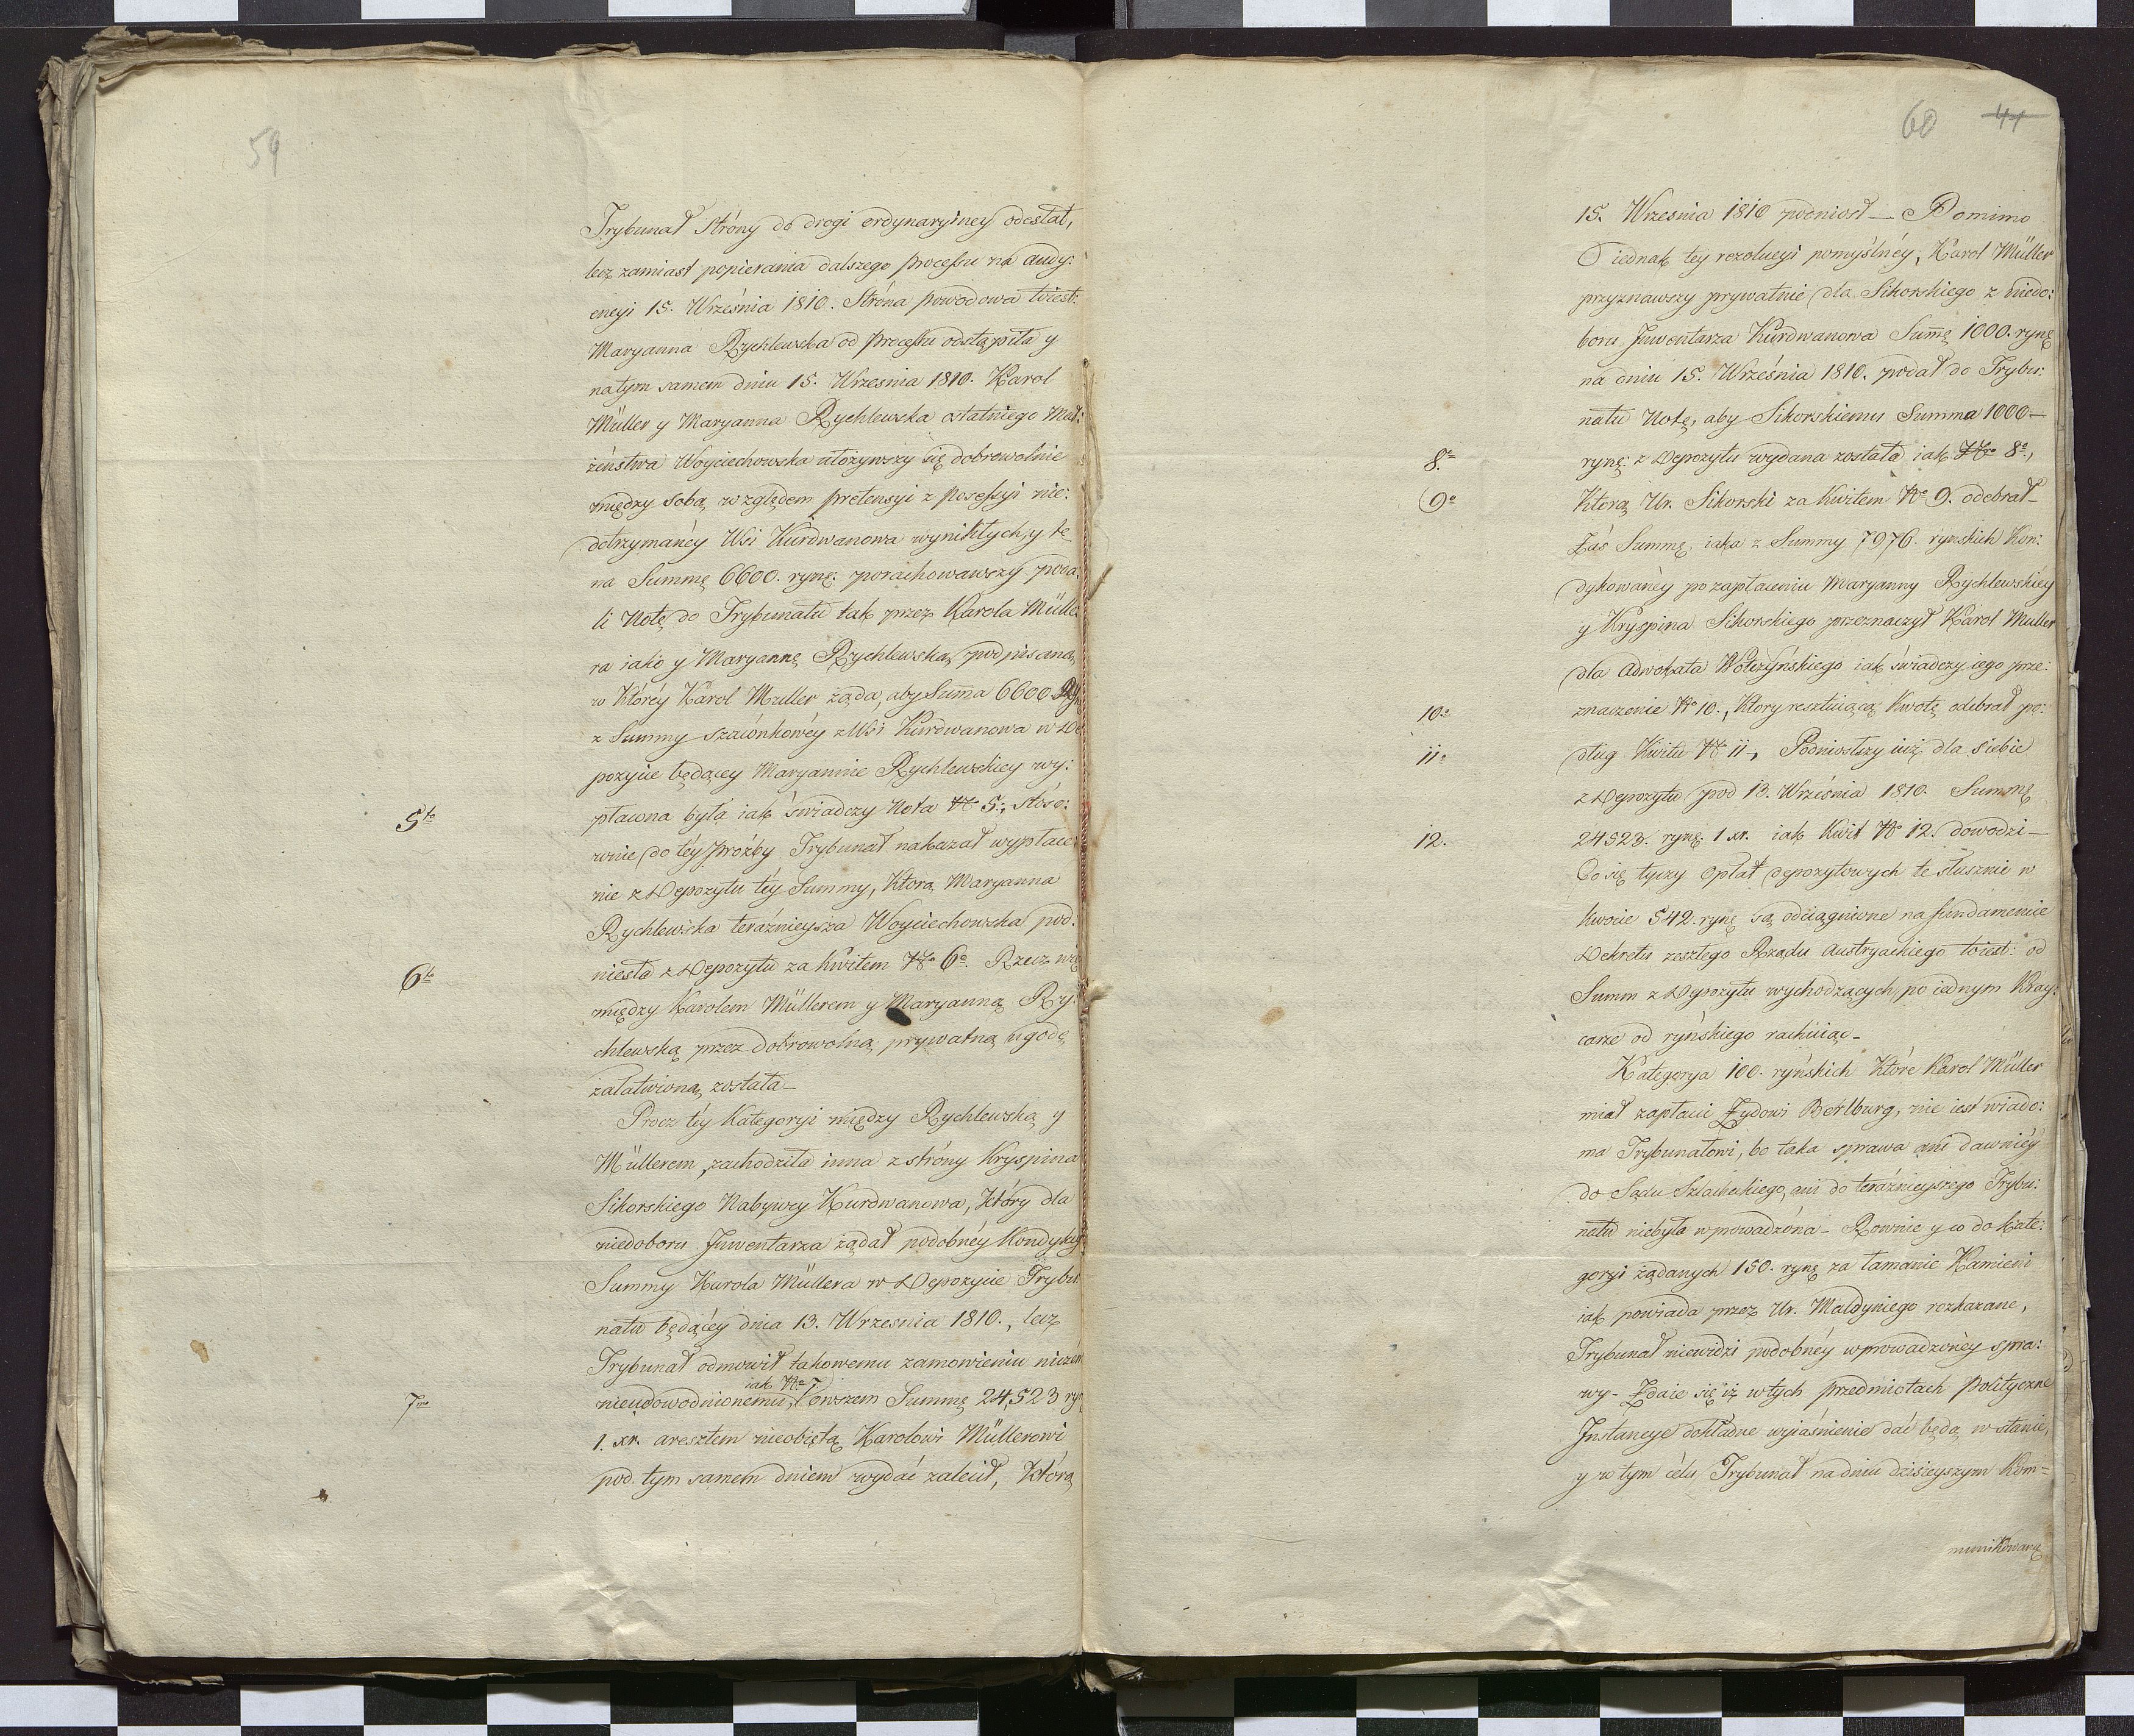 59
Trybunał Stróny do drogi ordynaryiney odesłał,
lecz zamiast popierania dalszego processu na audy:
encyi 15. Września 1810. Stróna powodowa toiest:
Maryanna Rychlewska od processu odstąpiła y
natym samem dniu 15. Wrzesnia 1810. Karol
Müller y Maryanna Rychlewska ostatniego Mał:
żeństwa Woyciechowska ułożywszy się dobrowolnie
między sobą względem pretensyi z posessyi nie:
dotrzymanéy Wsi Kurdwanowa wynikłych, y te
na Summę 6600. rynę: porachowawszy poda:
li Notę do Trybunału tak przez Karola Mülle:
ra iako y Maryannę Rychlewską podpisaną,
w któréy Karol Muller żąda, aby Summa 6600 Ryn
z Summy szacónkowéy z Wsi Kurdwanowa w De
pozycie będącey Maryannie Rychlewskiey wy:
5to płacona była iak świadczy Nota No 5., stóso:
wnie do téy prózby Trybunał nakazał wypłace:
nie z Depozytu téy Summy, którą Maryanna
Rychlewska teráznieysza Woyciechowska pod:
6to niesła z Depozytu za kwitem No 6o. Rzecz wię
między Karolem Müllerem y Maryanną Ry:
chlewską przez dobrowolną prywatną ugodę
załatwioną została –
Procz téy kategoryi między Rychlewską y
Müllerem, zachodziła inna z stróny Kryspina
Sikorskiego Nabywcy Kurdwanowa, który dla
niedoboru Juwentarza żądał podobnéy kondykcyi
Summy Karola Müllera w Depozycie Trybu
nału będącéy dnia 13. Wrzesnia 1810., lecz
Trybunał odmowił takowemu zamowieniu niczem
iak No 7
7mo nieudowodnionemu, owszem Summę 24,523 ry
1. xr. aresztem nieobiętą Karolowi Müllerowi
pod tym samem dniem wydać zalecił, którą
60 41
15. Wrzesnia 1810 podniosł — Pomimo
iednak tey rezolucyi pomyślnéy, Karol Müller
przyznawszy prywatnie dla Sikorskiego z niedo:
boru Juwentarza Kurdwanowa Summę 1000. rynę
na dniu 15. Września 1810. podał do Trybu:
nału Notę, aby Sikorskiemu Summa 1000 —
8o rynę: z Depozytu wydana została iak No 8o.,
9o Którą Ur. Sikorski za kwitem No 9. odebrał –
Zaś Summę, iaka z Summy 7976. rynskich Kon:
dykowanéy po zapłaceniu Maryanny Rychlewskiey
y Kryspina Sikorskiego przeznaczył Karol Muller
dla Adwokata Wołczyńskiego iak świadczy iego prze:
10o znaczenie No 10., Ktory resztuiącą Kwotę odebrał po:
11o dług Kwitu No 11., Podniosłszy iuż dla siebie
z Depozytu pod 18. Września 1810. Summę
12. 24523. rynę 1 xr. iak Kwit No 12. dowodzi —
Co się tyczy opłat depozytowych te słusznie w
kwocie 542. rynę są odciągnione na fundamencie
Dekretu zeszłego Rządu Austryackiego toiest: od
Summ z Depozytu wychodzących po iednym Kray:
carze od ryńskiego rachuiąc –
Kategorya 100. ryńskich które Karol Müller
miał zapłacić Żydowi Bertburg, nie iest wiado:
ma Trybunałowi, bo taka sprawa ani dawniéy
do Sądu Szlacheckiego, ani do teráznieyszego Trybu:
nału niebyła wprowadzóna – Rownie y co do kate:
goryi żądanych 150. rynę za łamanie Kamieni
iak powiada przez Ur. Maldyniego rozkazane,
Trybunał niewidzi podobnéy wprowadzonéy spra:
wy – Zdaie się iż w tych przedmiotach polityczne
Instancye dokładne wyiaśnienie dać będą w stanie,
y w tym célu Trybunał na dniu dzisieyszym kom=
munikowany